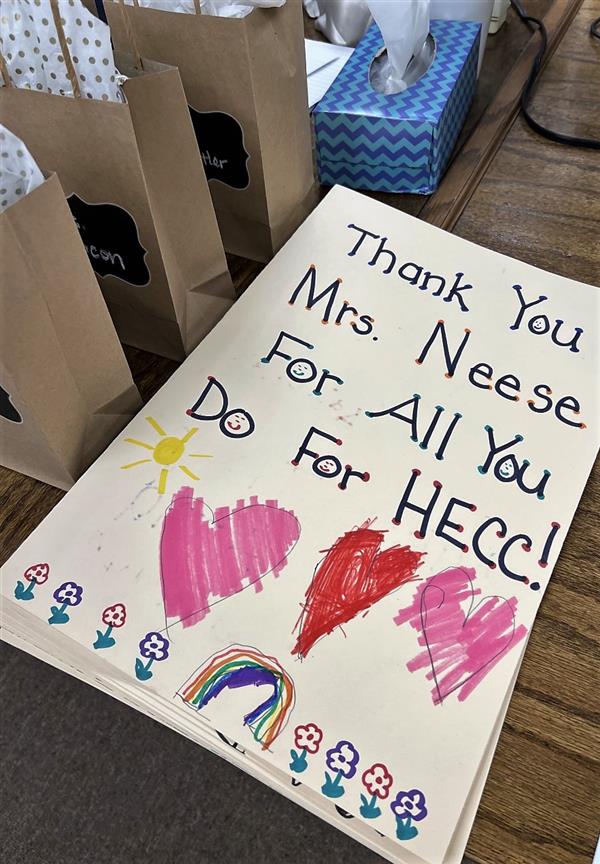 Thank You
Mrs. Neese
For All You
Do For HECC!